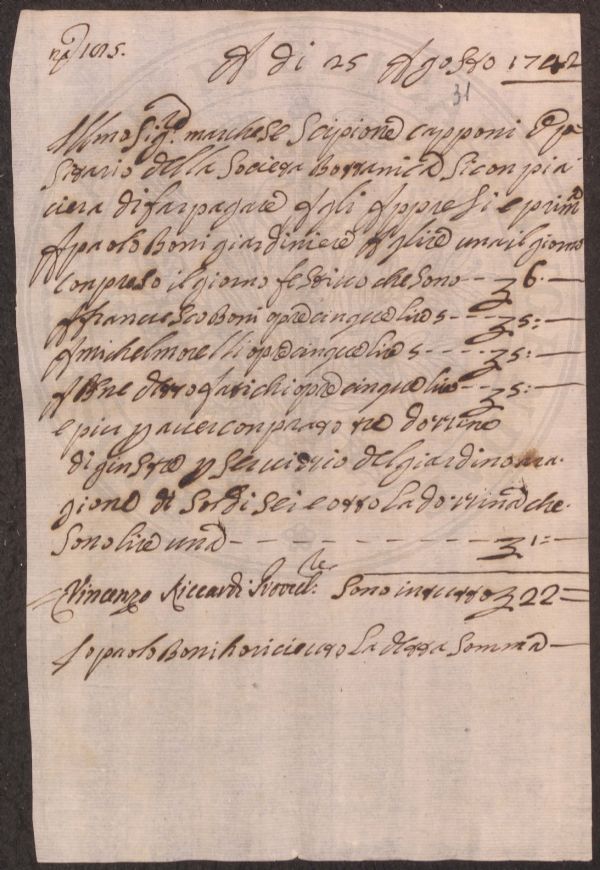 A di 25 Agosto 1742
31
Ill.mo Sig.r marchese Scipione capponi Depo
sitario della Societa Bottanica Si conpia
cera di far pagare Agli Appresi e prim
A paolo Boni giardiniere A lire una il giorno
conpreso il giorno festivo che sono --- 6.—
A francesco Boni opre cinque lire 5 --- 5:—
A michel morelli opre cinque lire 5 --- 5:—
A Bne detto fatichi opre cinque lire --- 5:—
e piu p aver conprato tre dozzine
di ginestre p servizio del giardino a ra-
gione di soldi sei e otto la dozzina che
sono lire una - - - - - 1:=
Vincenzo Riccardi sono in tutto 22=
Io paolo Boni ho riceuto la detta somma —